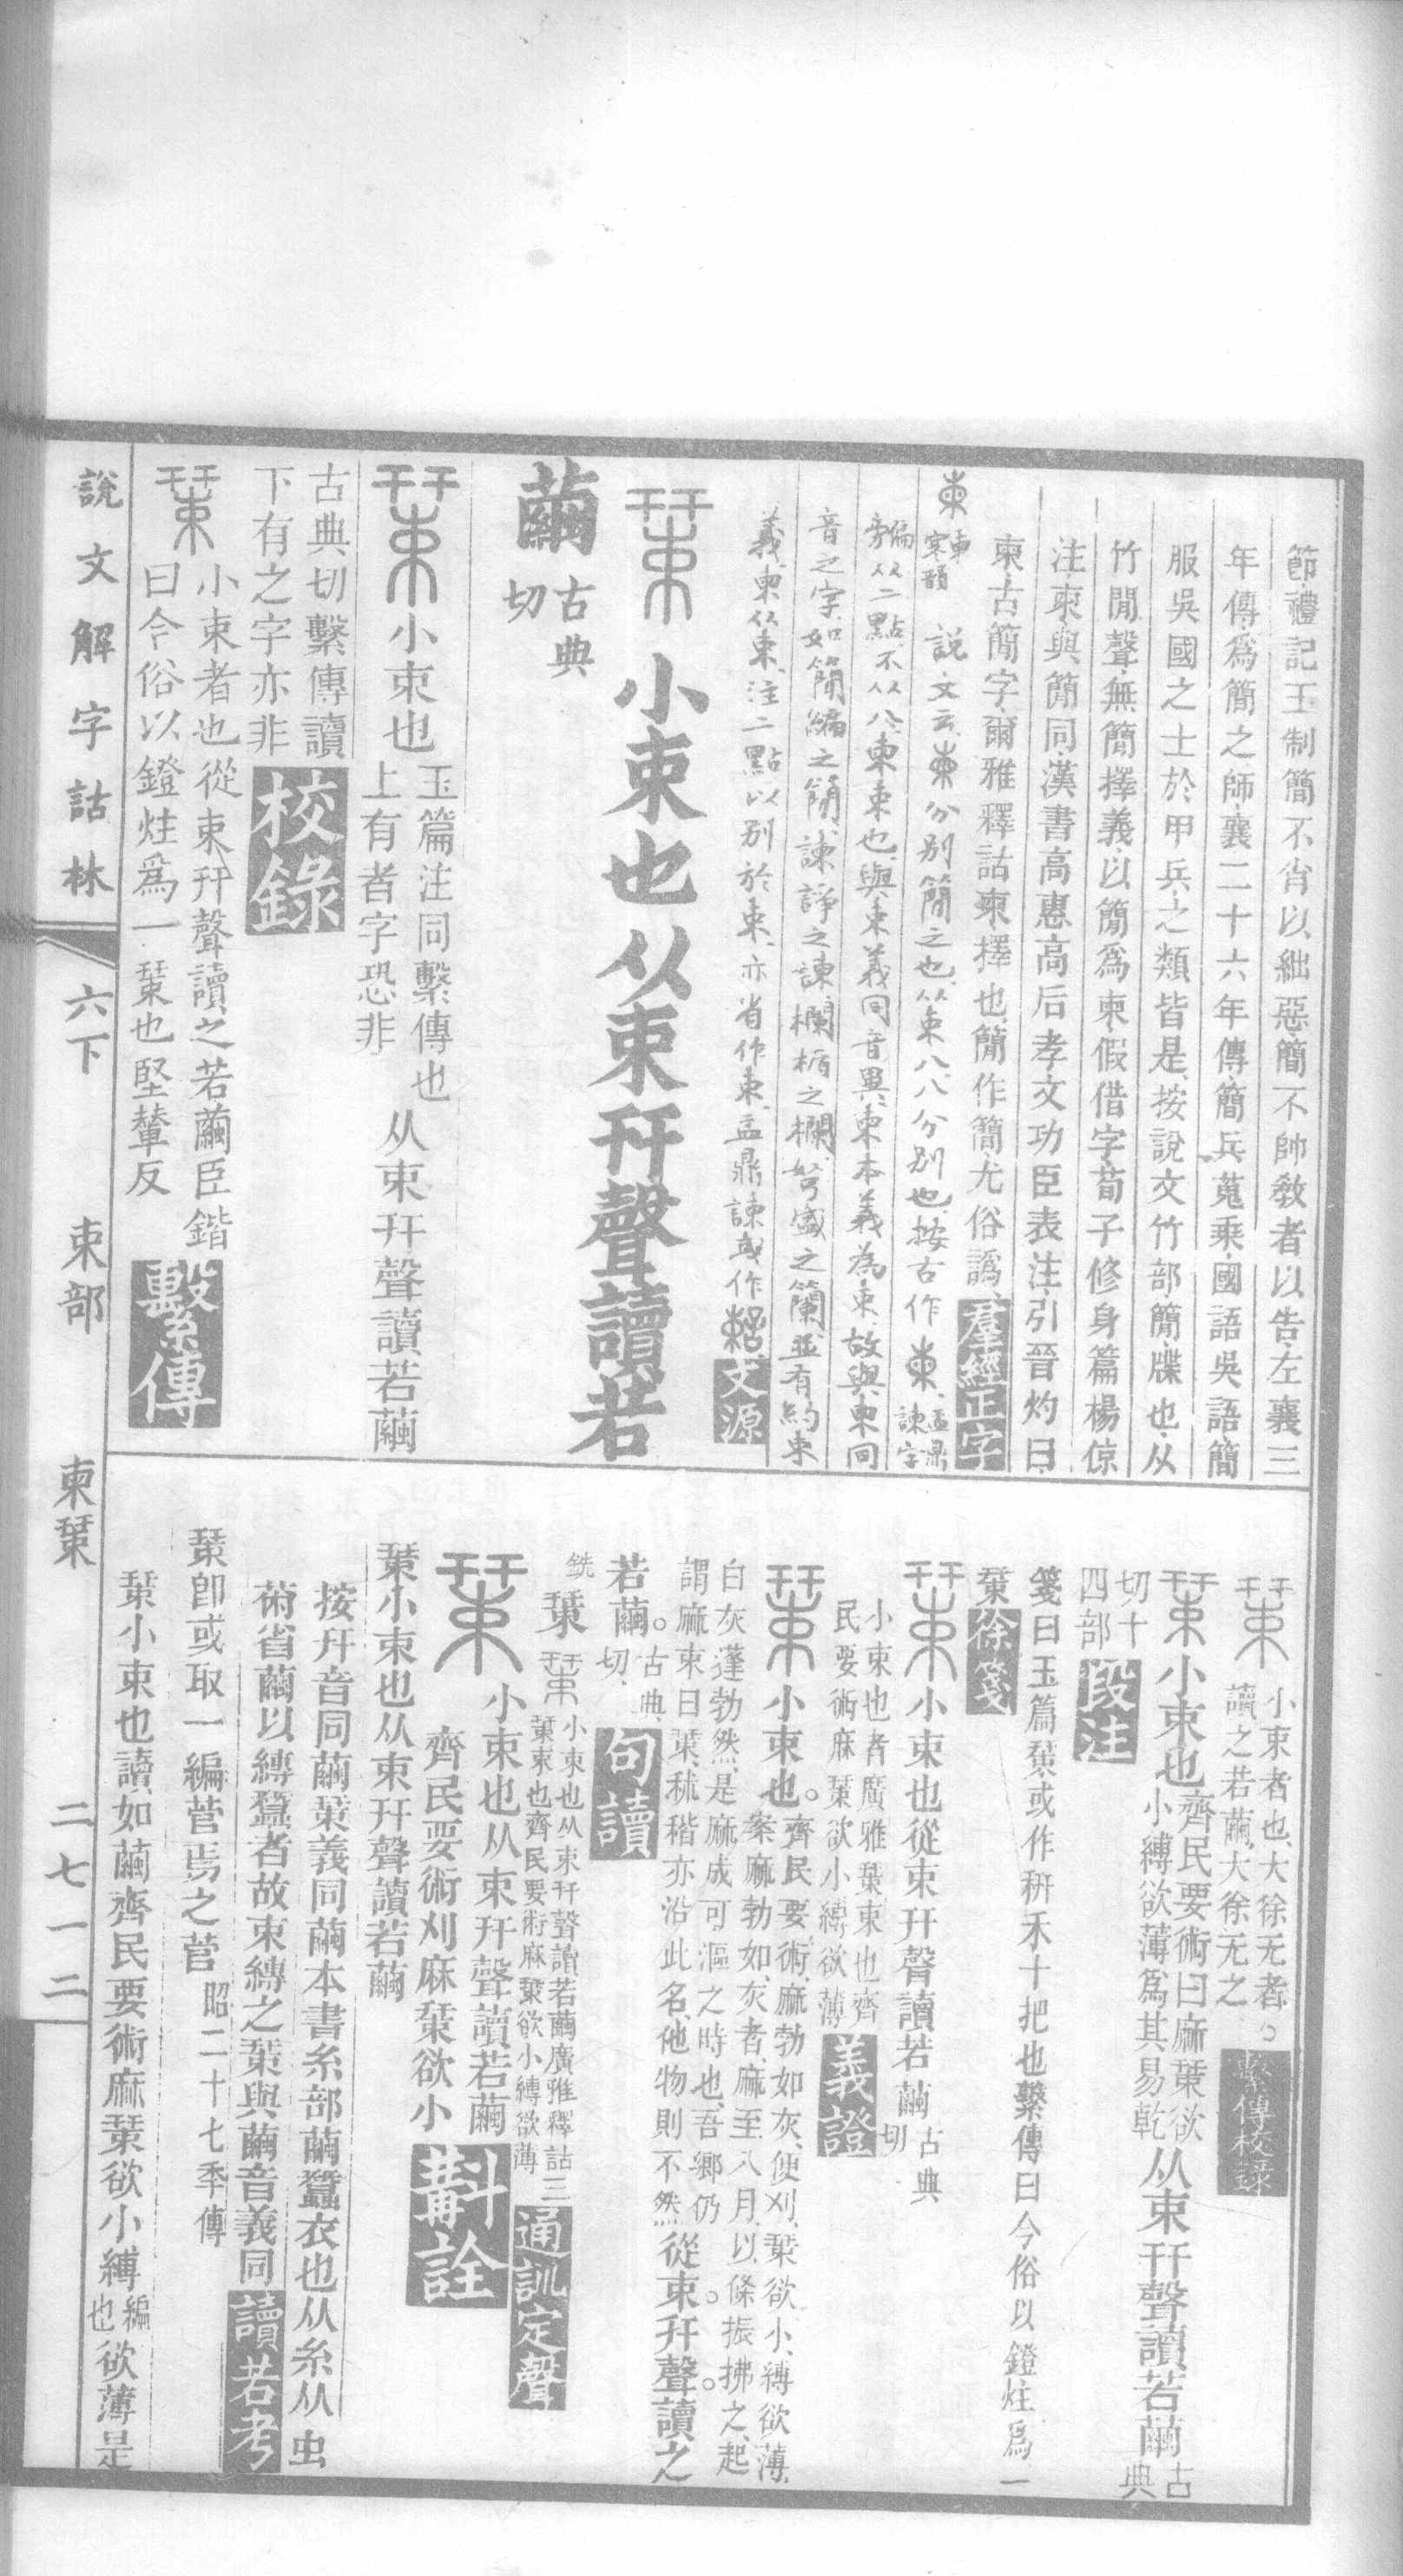 節禮記王制簡不肖以絀惡簡不帥教者以告左襄三
年傳爲簡之師襄二十六年傳簡兵蒐乘國語吳語簡
服吳國之士於甲兵之類皆是按說文竹部簡牒也从
竹閒聲無簡擇義以簡爲柬假借字荀子修身篇楊倞
注柬與簡同漢書高惠高后孝文功臣表注引晉灼曰
柬古簡字爾雅釋詁柬擇也簡作簡尤俗譌羣經正字
柬 寒韻 說文云柬分別簡之也从束八八分別也按古作柬 盂鼎諫字
偏旁从二點不从八柬束也與束義同音異柬本義為束故與束同
音之字如簡編之簡諫諍之諫欄楯之欄弩盛之籣並有約束
義柬从束注二點以別於束亦省作束盂鼎諫或作 文源
𣗥 小束也从束幵聲讀若
繭 古典切
𣗥小束也 玉篇注同繫傳也上有者字恐非 从束幵聲讀若繭
古典切繫傳讀下有之字亦非 校錄
𣗥 小束者也從束幵聲讀之若繭臣鍇
曰今俗以鐙炷爲一𣗥也堅輦反 繫傳
說文解字詁林 六下 束部 柬𣗥 二七一二
𣗥 小束者也大徐无者。讀之若繭大徐无之 繫傳校錄
𣗥小束也 齊民要術曰麻𣗥欲小縛欲薄爲其易乾 从束幵聲讀若繭 古典
切十四部 段注
箋曰玉篇𣗥或作䅽禾十把也繫傳曰今俗以鐙炷爲一
𣗥徐箋
𣗥小束也從束幵聲讀若繭 古典切
小束也者廣雅𣗥束也齊民要術麻𣗥欲小縛欲薄 義證
𣗥小束也。 齊民要術麻勃如灰便刈𣗥欲小縛欲薄
案麻勃如灰者麻至八月以條振拂之起
白灰蓬勃然是麻成可漚之時也吾鄉仍
謂麻束曰𣗥秫稭亦沿此名他物則不然 從束幵聲。讀之
若繭。 古典切 句讀
銑 𣗥 小束也从束幵聲讀若繭廣雅釋詁三𣗥束也齊民要術麻𣗥欲小縛欲薄 通訓定聲
𣗥 小束也从束幵聲讀若繭
齊民要術刈麻𣗥欲小 斠詮
𣗥小束也从束幵聲讀若繭
按幵音同繭𣗥義同繭本書糸部繭蠶衣也从糸从虫
𦭓省繭以縛蠶者故束縛之𣗥與繭音義同讀若考
𣗥卽或取一編菅焉之菅 昭二十七年傳
𣗥小束也讀如繭齊民要術麻𣗥欲小縛 編也 欲薄是